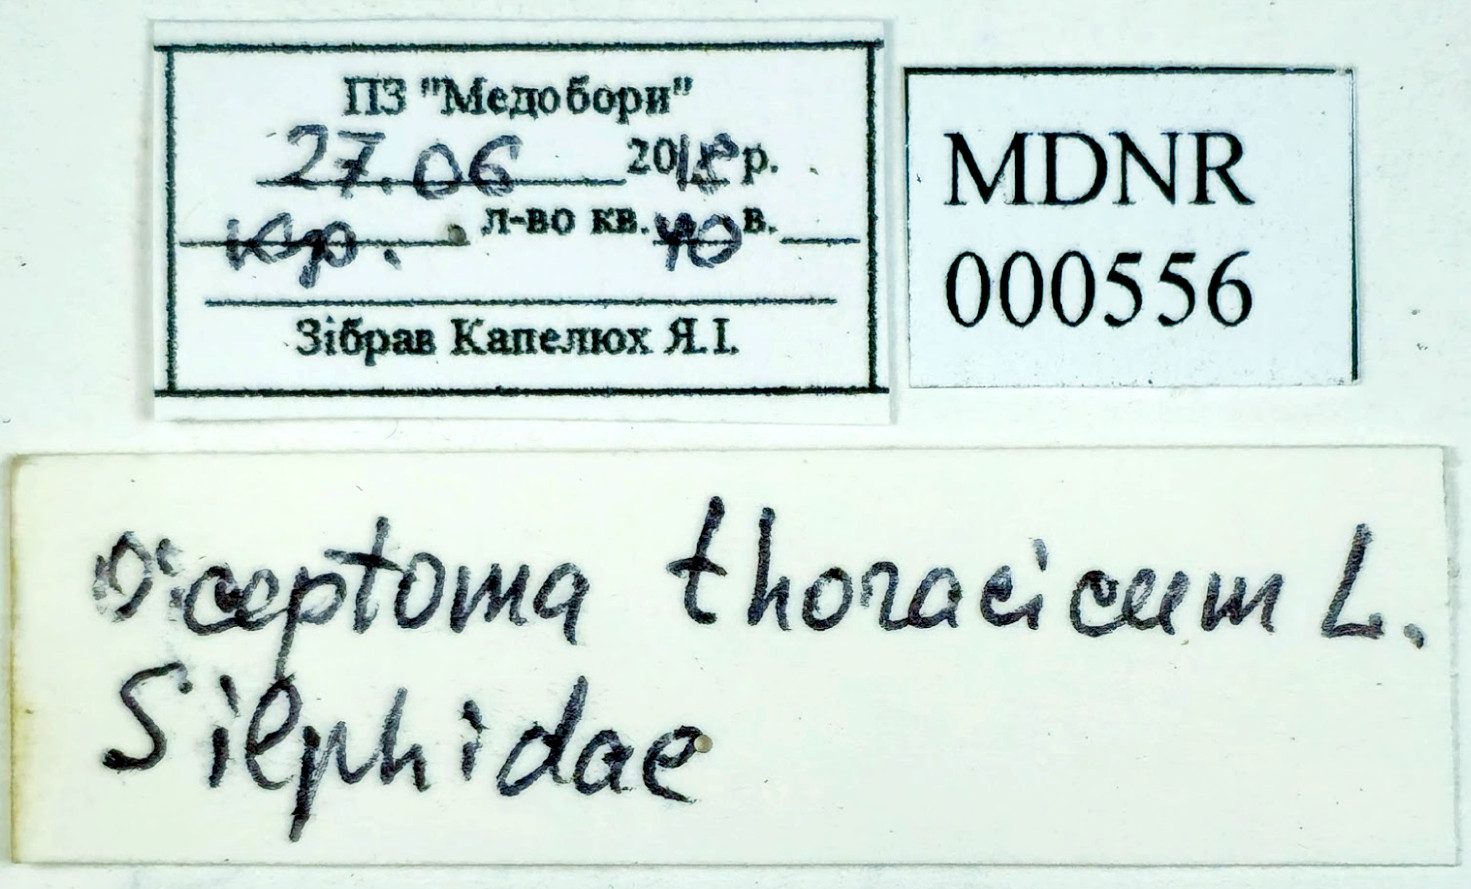 ПЗ "Медобори"
27.06 2018 р.
Кр. л-во кв. 40 в.
Зібрав Капелюх Я.І.
MDNR
000556
Oiceptoma thoracicum L.
Silphidae